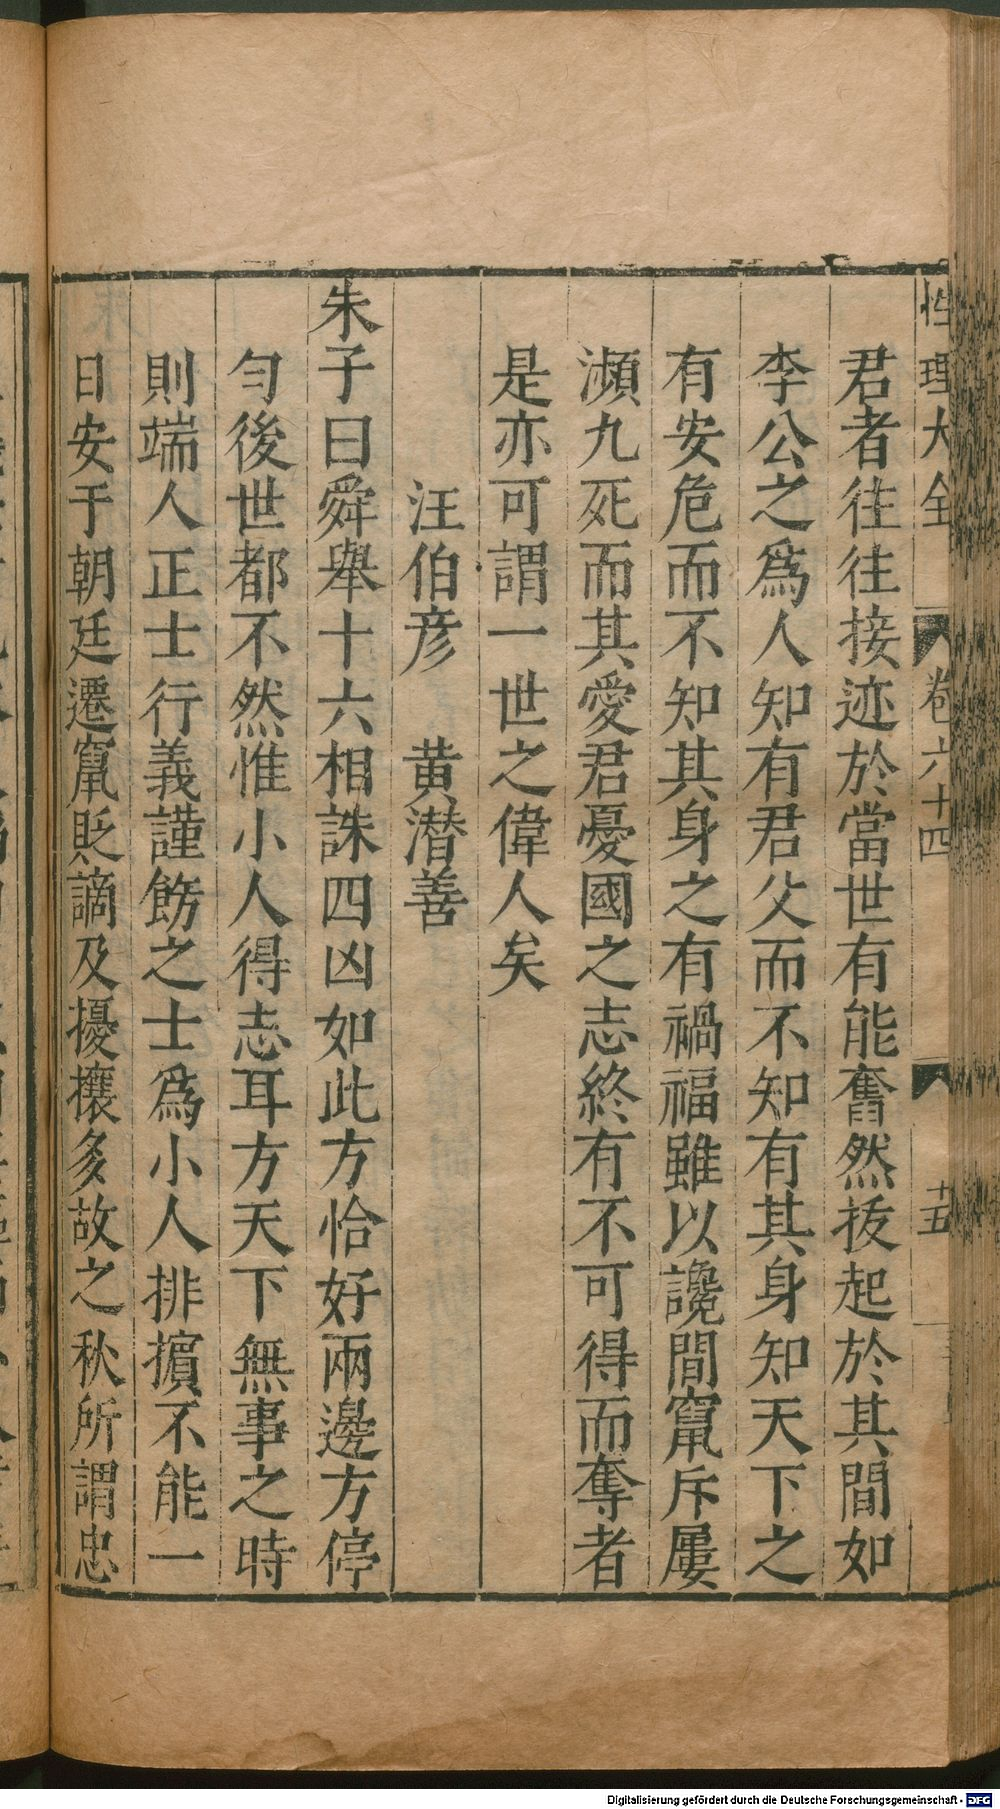 性理大全 卷六十四 十五
君者往往接迹於當世有能奮然拔起於其間如
李公之爲人知有君父而不知有其身知天下之
有安危而不知其身之有禍福雖以讒間竄斥屢
瀕九死而其愛君憂國之志終有不可得而奪者
是亦可謂一世之偉人矣
汪伯彥 黃潛善
朱子曰舜舉十六相誅四凶如此方恰好兩邊方停
勻後世都不然惟小人得志耳方天下無事之時
則端人正士行義謹飭之士爲小人排擯不能一
日安于朝廷遷竄貶謫及擾攘多故之秋所謂忠
Digitalisierung gefördert durch die Deutsche Forschungsgemeinschaft - DFG